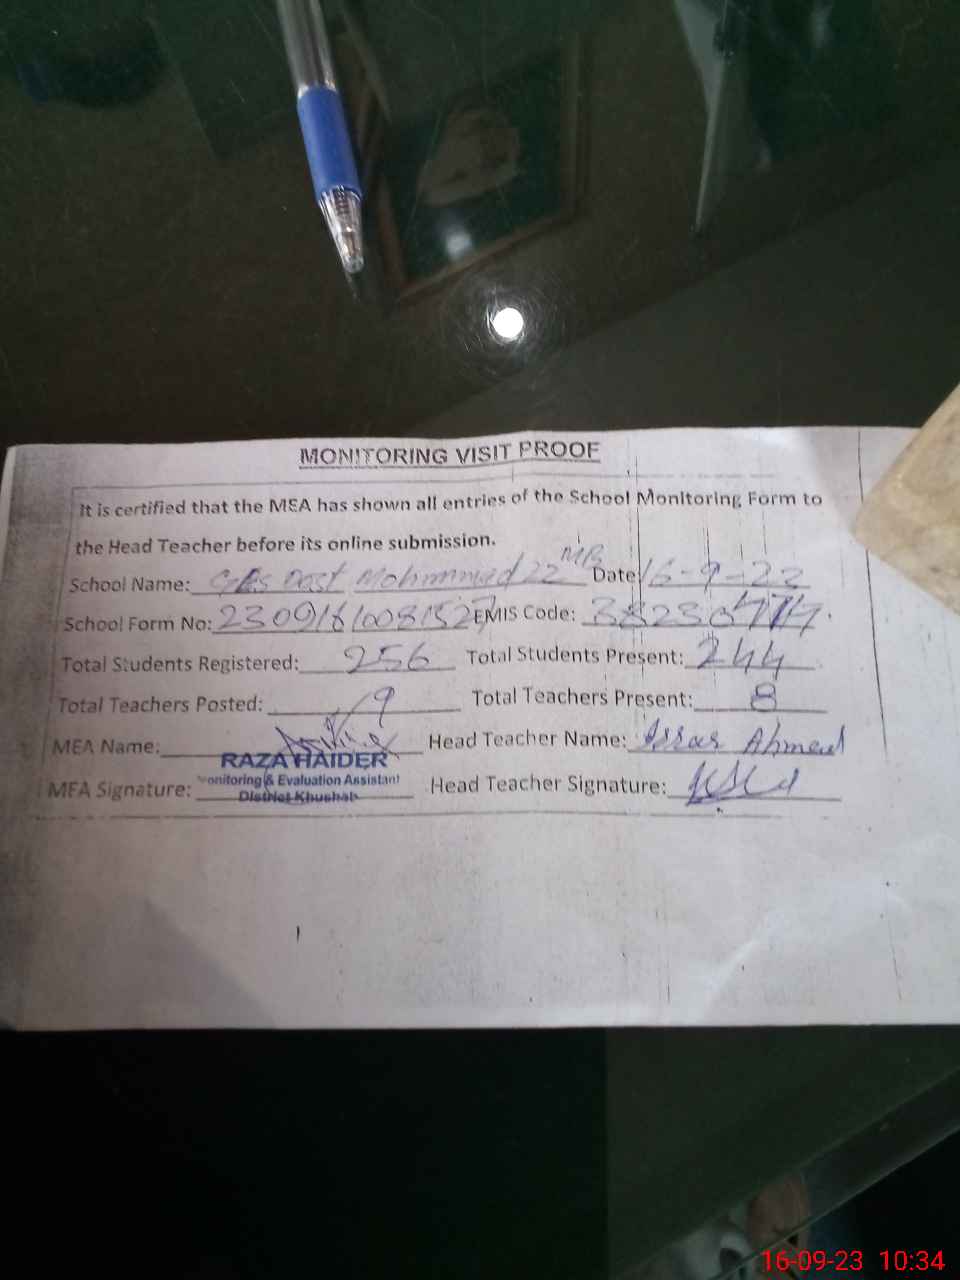 MONITORING VISIT PROOF
It is certified that the MEA has shown all entries of the School Monitoring Form to
the Head Teacher before its online submission.
School Name: Dost Mohmmad 22 MB Date 16-9-22
School Form No: EMIS Code:
Total Students Registered: 256 Total Students Present: 244
Total Teachers Posted: 9 Total Teachers Present: 8
MEA Name: Head Teacher Name: Israr Ahmed
RAZA HAIDER
Monitoring & Evaluation Assistant
District Khushab
MEA Signature: Head Teacher Signature:
16-09-23 10:34